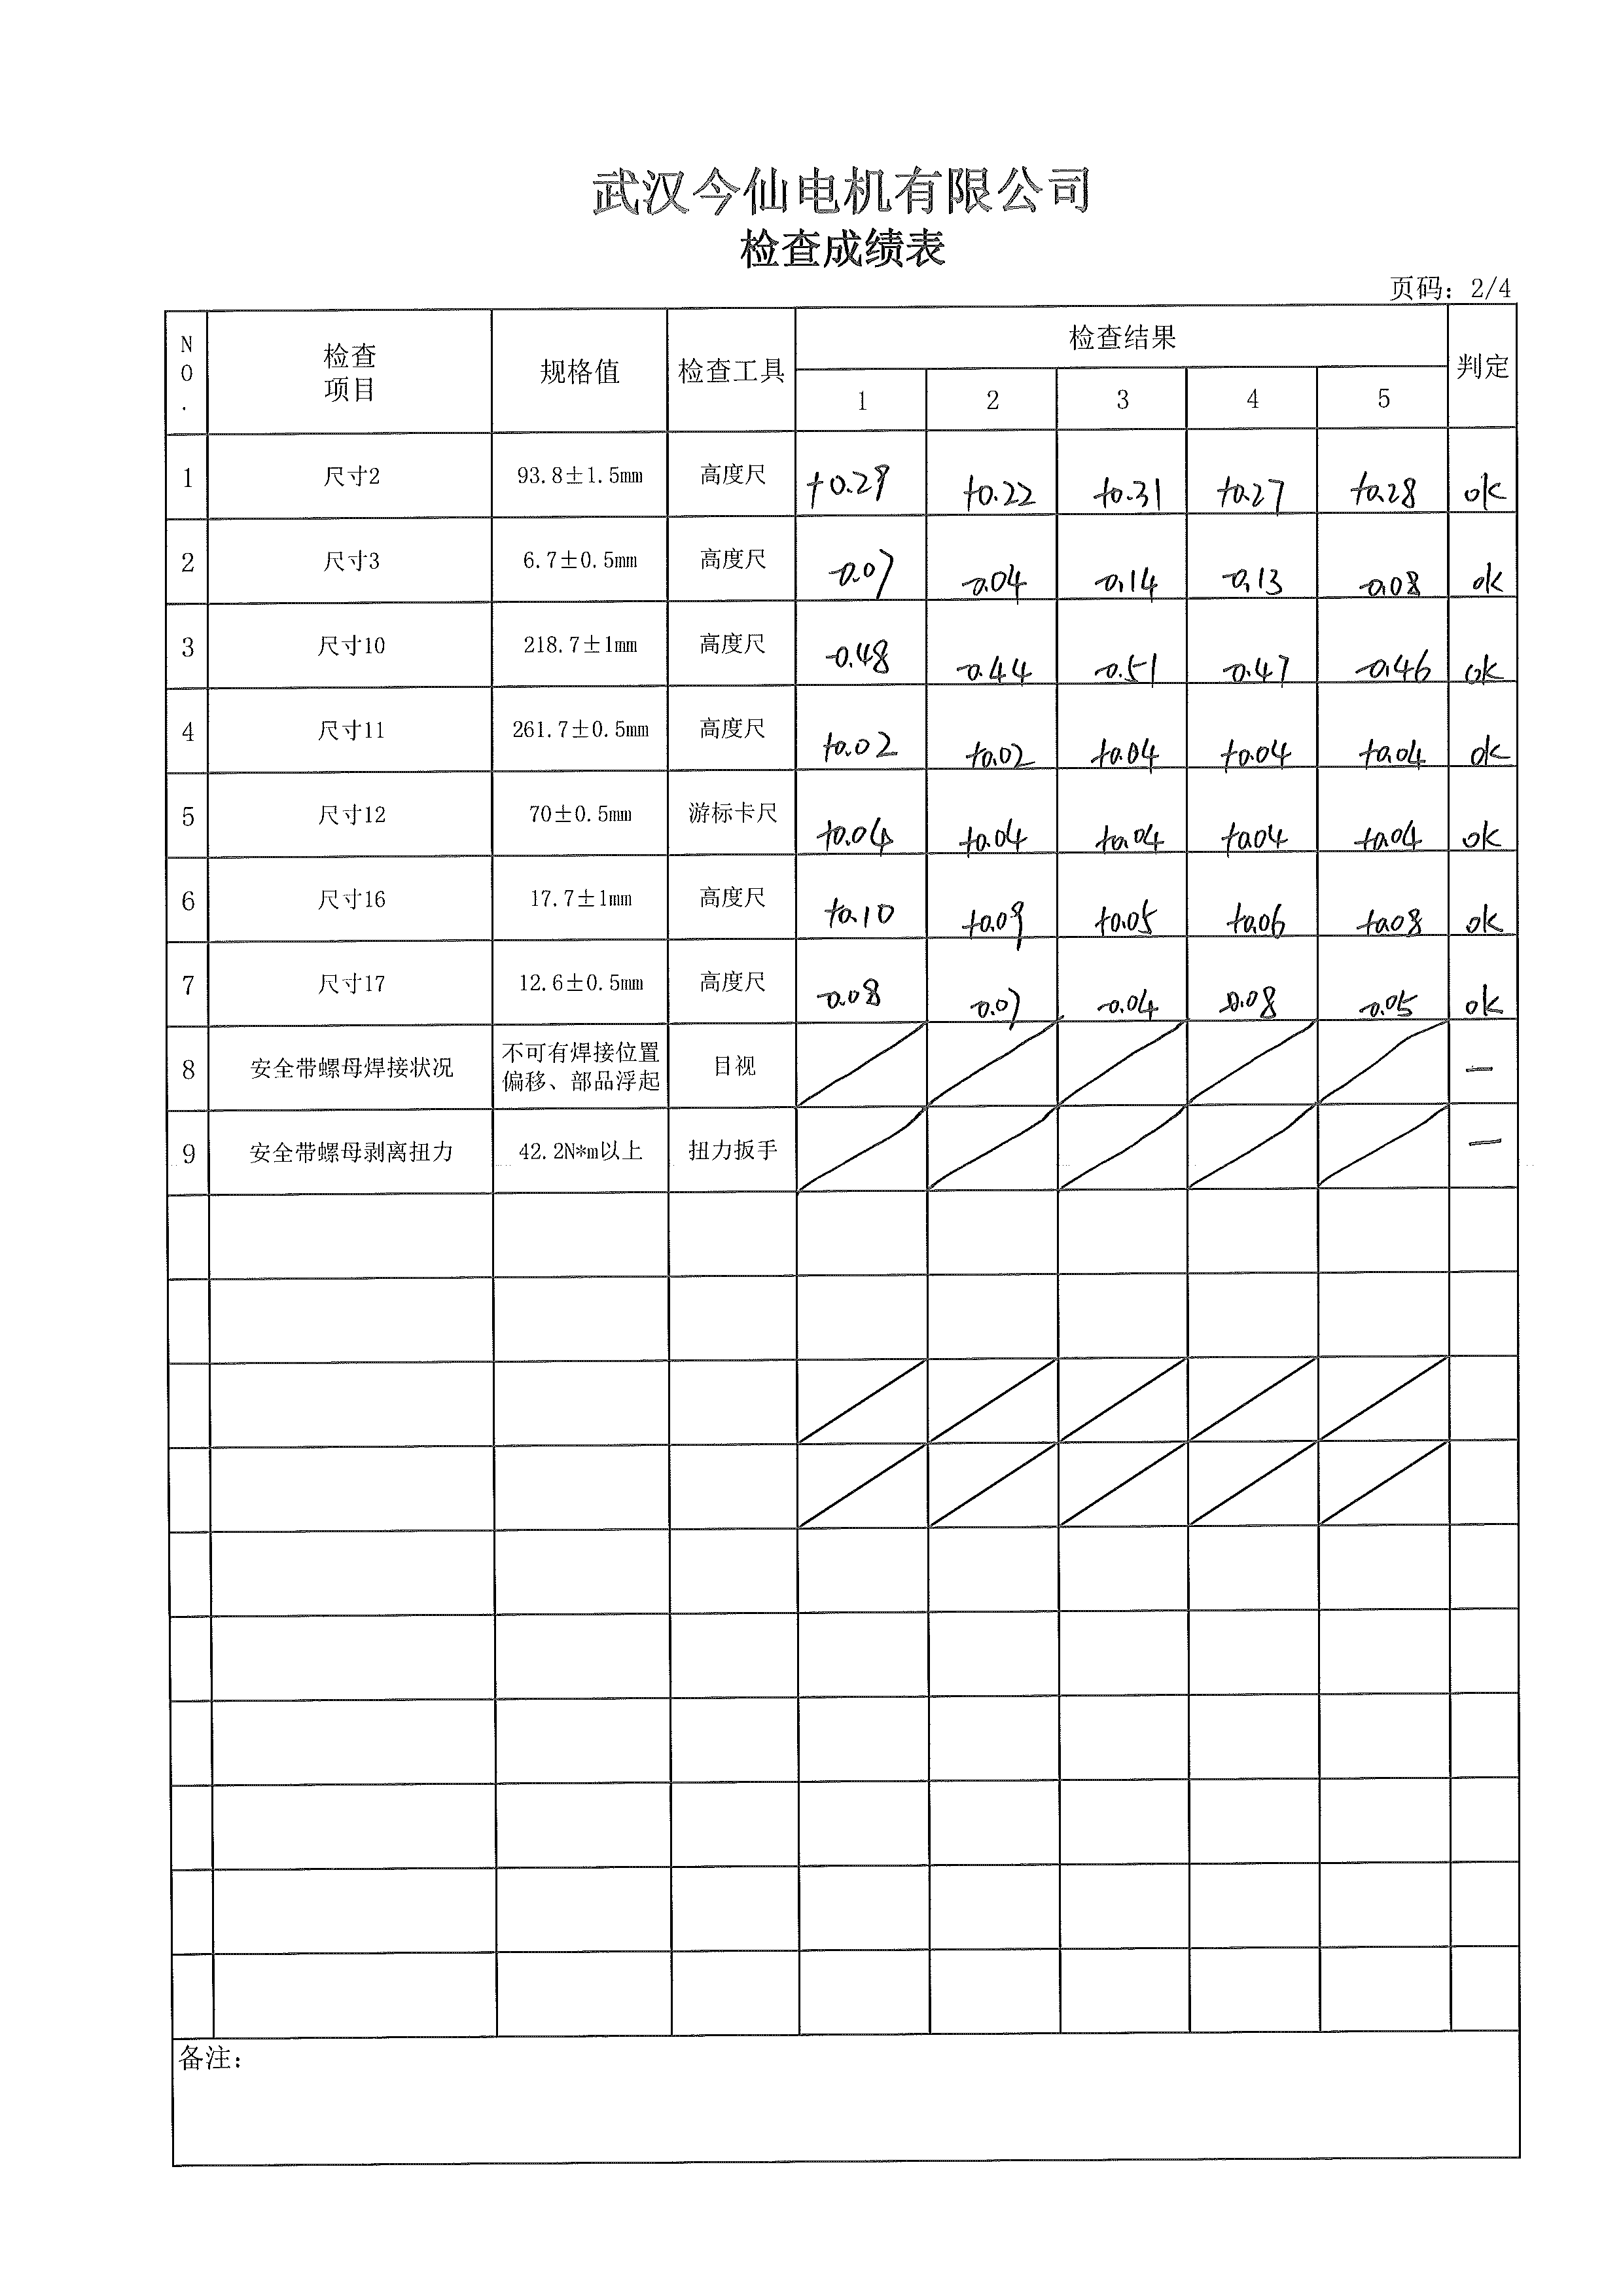 武汉今仙电机有限公司
检查成绩表
页码：2/4
NO. 检查项目 规格值 检查工具 检查结果 判定
1 2 3 4 5
1 尺寸2 93.8±1.5mm 高度尺 +0.29 +0.22 +0.31 +0.27 +0.28 ok
2 尺寸3 6.7±0.5mm 高度尺 -0.07 -0.04 -0.14 -0.13 -0.08 ok
3 尺寸10 218.7±1mm 高度尺 -0.48 -0.44 -0.51 -0.47 -0.46 ok
4 尺寸11 261.7±0.5mm 高度尺 +0.02 +0.02 +0.04 +0.04 +0.04 ok
5 尺寸12 70±0.5mm 游标卡尺 +0.04 +0.04 +0.04 +0.04 +0.04 ok
6 尺寸16 17.7±1mm 高度尺 +0.10 +0.09 +0.05 +0.06 +0.08 ok
7 尺寸17 12.6±0.5mm 高度尺 -0.08 -0.07 -0.04 -0.08 -0.05 ok
8 安全带螺母焊接状况 不可有焊接位置偏移、部品浮起 目视 —
9 安全带螺母剥离扭力 42.2N*m以上 扭力扳手 —
备注：